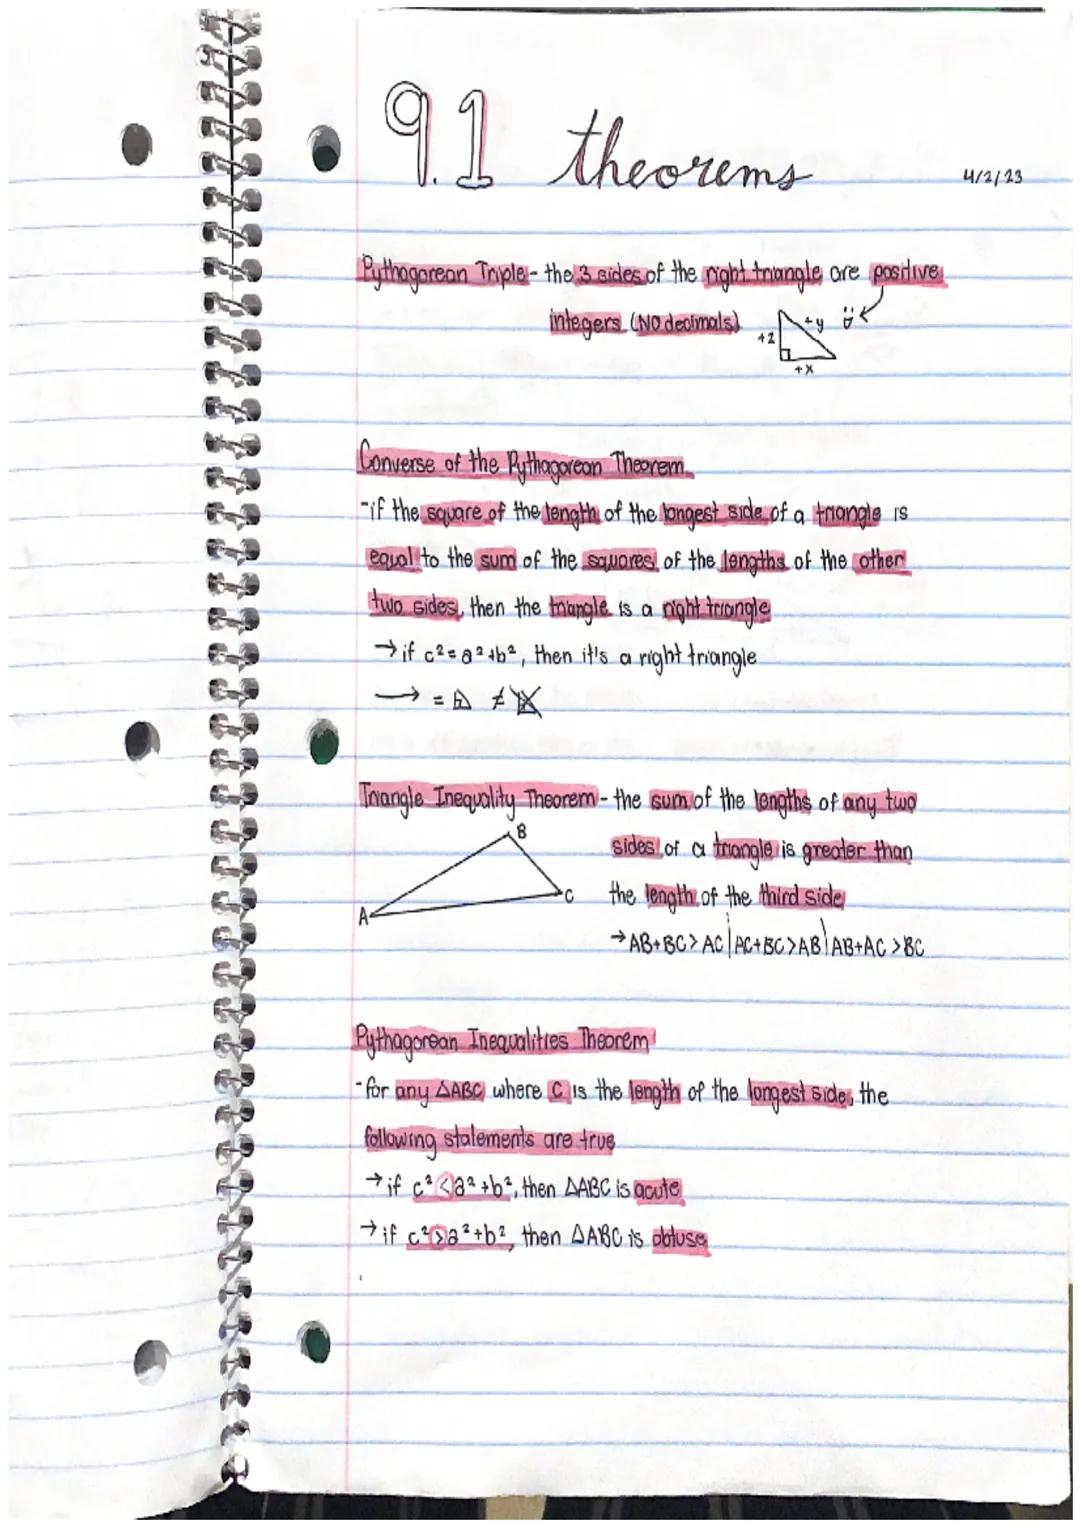 9.1 theorems 4/2/23
Pythagorean Triple - the 3 sides of the right triangle are positive
integers (NO decimals)
+z +y
+x
Converse of the Pythagorean Theorem
-if the square of the length of the longest side of a triangle is
equal to the sum of the squares of the lengths of the other
two sides, then the triangle is a right triangle
→ if c² = a² + b², then it's a right triangle
→ = ≠
Triangle Inequality Theorem - the sum of the lengths of any two
B
sides of a triangle is greater than
A C
the length of the third side
→ AB+BC > AC | AC+BC > AB | AB+AC > BC
Pythagorean Inequalities Theorem
-for any △ABC where C is the length of the longest side, the
following statements are true
→ if c² < a² + b², then △ABC is acute
→ if c² > a² + b², then △ABC is obtuse